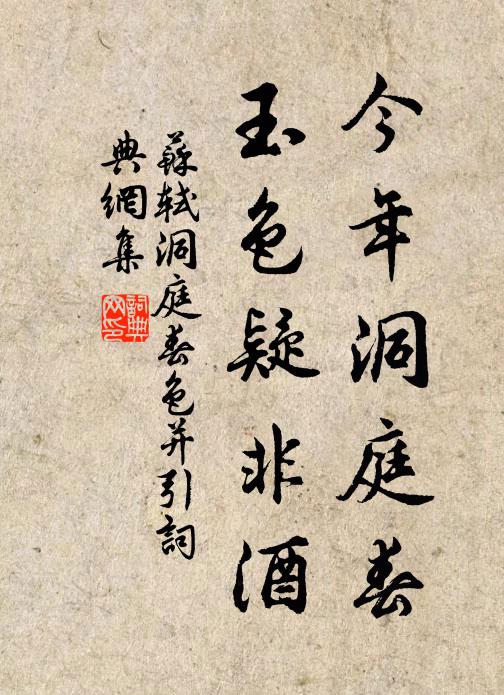 今年洞庭春
玉色疑非酒
蘇軾洞庭春色并引詞
典網集
詞典網印